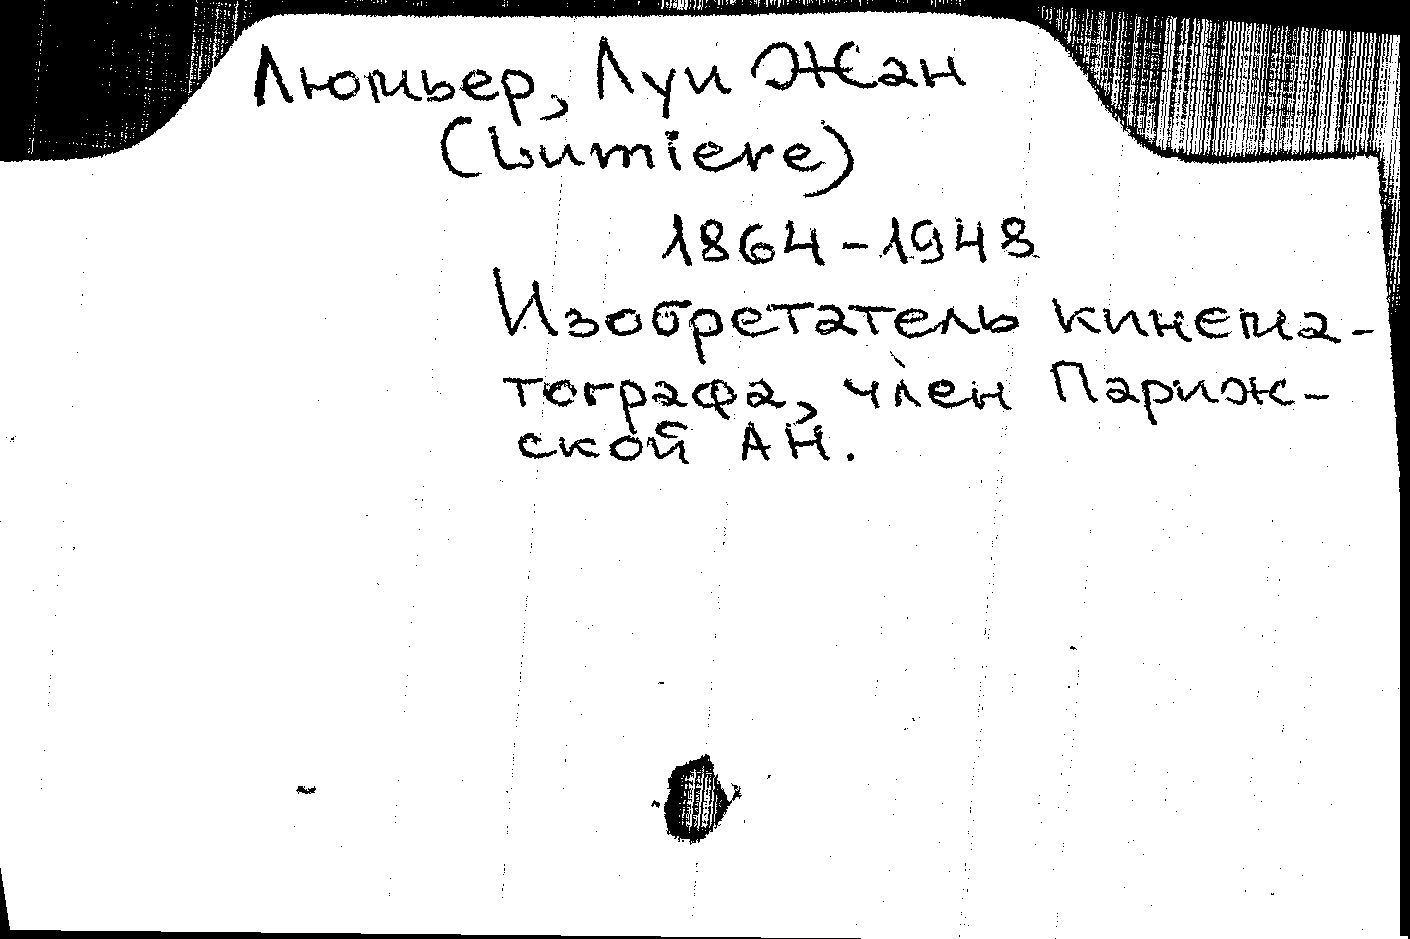 Люмьер, Луи Жан
(Lumiere)
1864-1948
Изобретатель кинема-
тографа, член Париж-
ской АН.